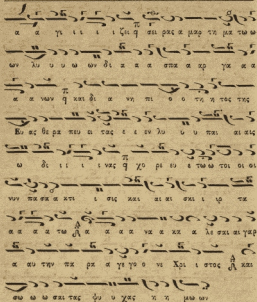 α α γι ι ι ι ζει σει ρας α μαρ τη μα τω ω
ων λυ υ υ ω ων δι α α α σπα α αρ γα α α
α α νων και δι α νη πι ο ο τη τος της
Ευ ας θε ρα πευ ει τας ε ε εν λυ υ υ παι αι αις
ω δι ι ι ι νας χο ρε ευ ε τω ω τοι οι οι
νυν πα σα α κτι ι σις και αι αι σκι ι ιρ τα
α α α τω α α α α να α κα α λε σαι αι γαρ
α αυ την πα ρα α γε γο ο νε Χρι ι στος και
σω ω ω σαι τας ψυ υ χας η η μω ων